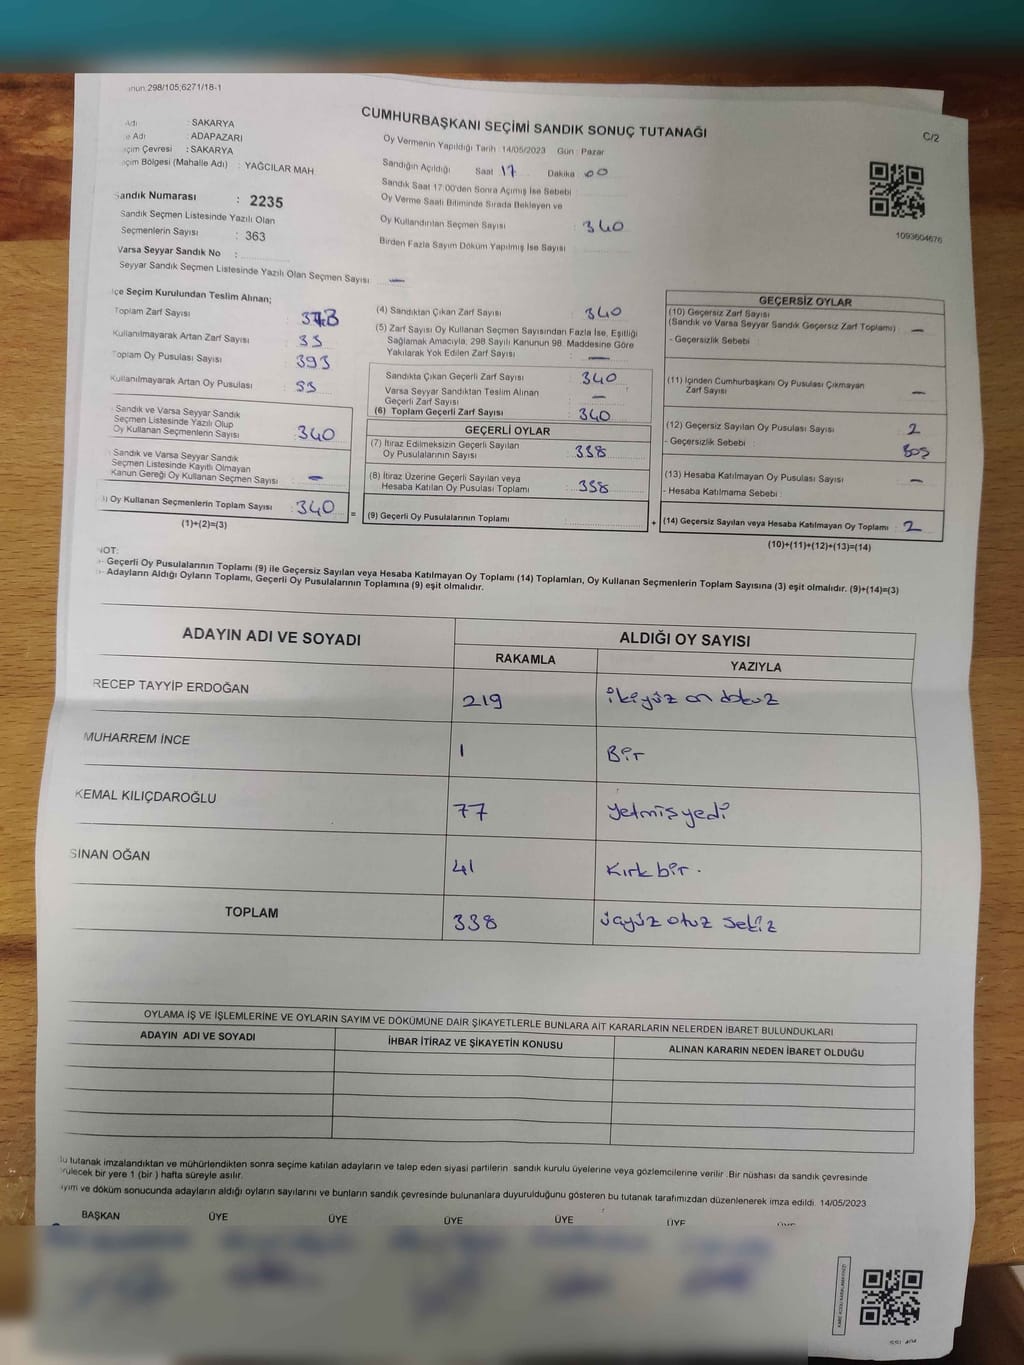 298/105;6271/18-1
CUMHURBAŞKANI SEÇİMİ SANDIK SONUÇ TUTANAĞI
C/2
: SAKARYA
Adı : ADAPAZARI
Çevresi : SAKARYA
Bölgesi (Mahalle Adı) : YAĞCILAR MAH
Sandık Numarası : 2235
Sandık Seçmen Listesinde Yazılı Olan
Seçmenlerin Sayısı : 363
Varsa Seyyar Sandık No :
Seyyar Sandık Seçmen Listesinde Yazılı Olan Seçmen Sayısı : —
Oy Vermenin Yapıldığı Tarih : 14/05/2023 Gün : Pazar
Sandığın Açıldığı Saat 17 Dakika 00
Sandık Saat 17:00'den Sonra Açımış İse Sebebi
Oy Verme Saati Bitiminde Sırada Bekleyen ve
Oy Kullandırılan Seçmen Sayısı : 340
Birden Fazla Sayım Döküm Yapılmış İse Sayısı
1093604676
Seçim Kurulundan Teslim Alınan;
Toplam Zarf Sayısı
Kullanılmayarak Artan Zarf Sayısı : 33
Toplam Oy Pusulası Sayısı 393
Kullanılmayarak Artan Oy Pusulası : 53
Sandık ve Varsa Seyyar Sandık
Seçmen Listesinde Yazılı Olup
Oy Kullanan Seçmenlerin Sayısı : 340
Sandık ve Varsa Seyyar Sandık
Seçmen Listesinde Kayıtlı Olmayan
Kanun Gereği Oy Kullanan Seçmen Sayısı : —
Oy Kullanan Seçmenlerin Toplam Sayısı : 340 =
(1)+(2)=(3)
(4) Sandıktan Çıkan Zarf Sayısı : 340
(5) Zarf Sayısı Oy Kullanan Seçmen Sayısından Fazla İse, Eşitliği
Sağlamak Amacıyla, 298 Sayılı Kanunun 98. Maddesine Göre
Yakılarak Yok Edilen Zarf Sayısı : —
Sandıkta Çıkan Geçerli Zarf Sayısı : 340
Varsa Seyyar Sandıktan Teslim Alınan
Geçerli Zarf Sayısı : —
(6) Toplam Geçerli Zarf Sayısı : 340
GEÇERLİ OYLAR
(7) İtiraz Edilmeksizin Geçerli Sayılan
Oy Pusulalarının Sayısı : 338
(8) İtiraz Üzerine Geçerli Sayılan veya
Hesaba Katılan Oy Pusulası Toplamı : 338
(9) Geçerli Oy Pusulalarının Toplamı : +
GEÇERSİZ OYLAR
(10) Geçersiz Zarf Sayısı
(Sandık ve Varsa Seyyar Sandık Geçersiz Zarf Toplamı) : —
- Geçersizlik Sebebi :
(11) İçinden Cumhurbaşkanı Oy Pusulası Çıkmayan
Zarf Sayısı : —
(12) Geçersiz Sayılan Oy Pusulası Sayısı : 2
- Geçersizlik Sebebi : Boş
(13) Hesaba Katılmayan Oy Pusulası Sayısı : —
- Hesaba Katılmama Sebebi :
(14) Geçersiz Sayılan veya Hesaba Katılmayan Oy Toplamı : 2
(10)+(11)+(12)+(13)=(14)
NOT:
- Geçerli Oy Pusulalarının Toplamı (9) ile Geçersiz Sayılan veya Hesaba Katılmayan Oy Toplamı (14) Toplamları, Oy Kullanan Seçmenlerin Toplam Sayısına (3) eşit olmalıdır. (9)+(14)=(3)
- Adayların Aldığı Oyların Toplamı, Geçerli Oy Pusulalarının Toplamına (9) eşit olmalıdır.
ADAYIN ADI VE SOYADI
ALDIĞI OY SAYISI
RAKAMLA YAZIYLA
RECEP TAYYİP ERDOĞAN 219 ikiyüz on dokuz
MUHARREM İNCE 1 Bir
KEMAL KILIÇDAROĞLU 77 Yetmiş yedi
SİNAN OĞAN 41 Kırk bir.
TOPLAM 338 üçyüz otuz sekiz
OYLAMA İŞ VE İŞLEMLERİNE VE OYLARIN SAYIM VE DÖKÜMÜNE DAİR ŞİKAYETLERLE BUNLARA AİT KARARLARIN NELERDEN İBARET BULUNDUKLARI
ADAYIN ADI VE SOYADI İHBAR İTİRAZ VE ŞİKAYETİN KONUSU ALINAN KARARIN NEDEN İBARET OLDUĞU
tutanak imzalandıktan ve mühürlendikten sonra seçime katılan adayların ve talep eden siyasi partilerin sandık kurulu üyelerine veya gözlemcilerine verilir. Bir nüshası da sandık çevresinde
bir yere 1 (bir) hafta süreyle asılır.
ve döküm sonucunda adayların aldığı oyların sayılarını ve bunların sandık çevresinde bulunanlara duyurulduğunu gösteren bu tutanak tarafımızdan düzenlenerek imza edildi. 14/05/2023
BAŞKAN ÜYE ÜYE ÜYE ÜYE ÜYE